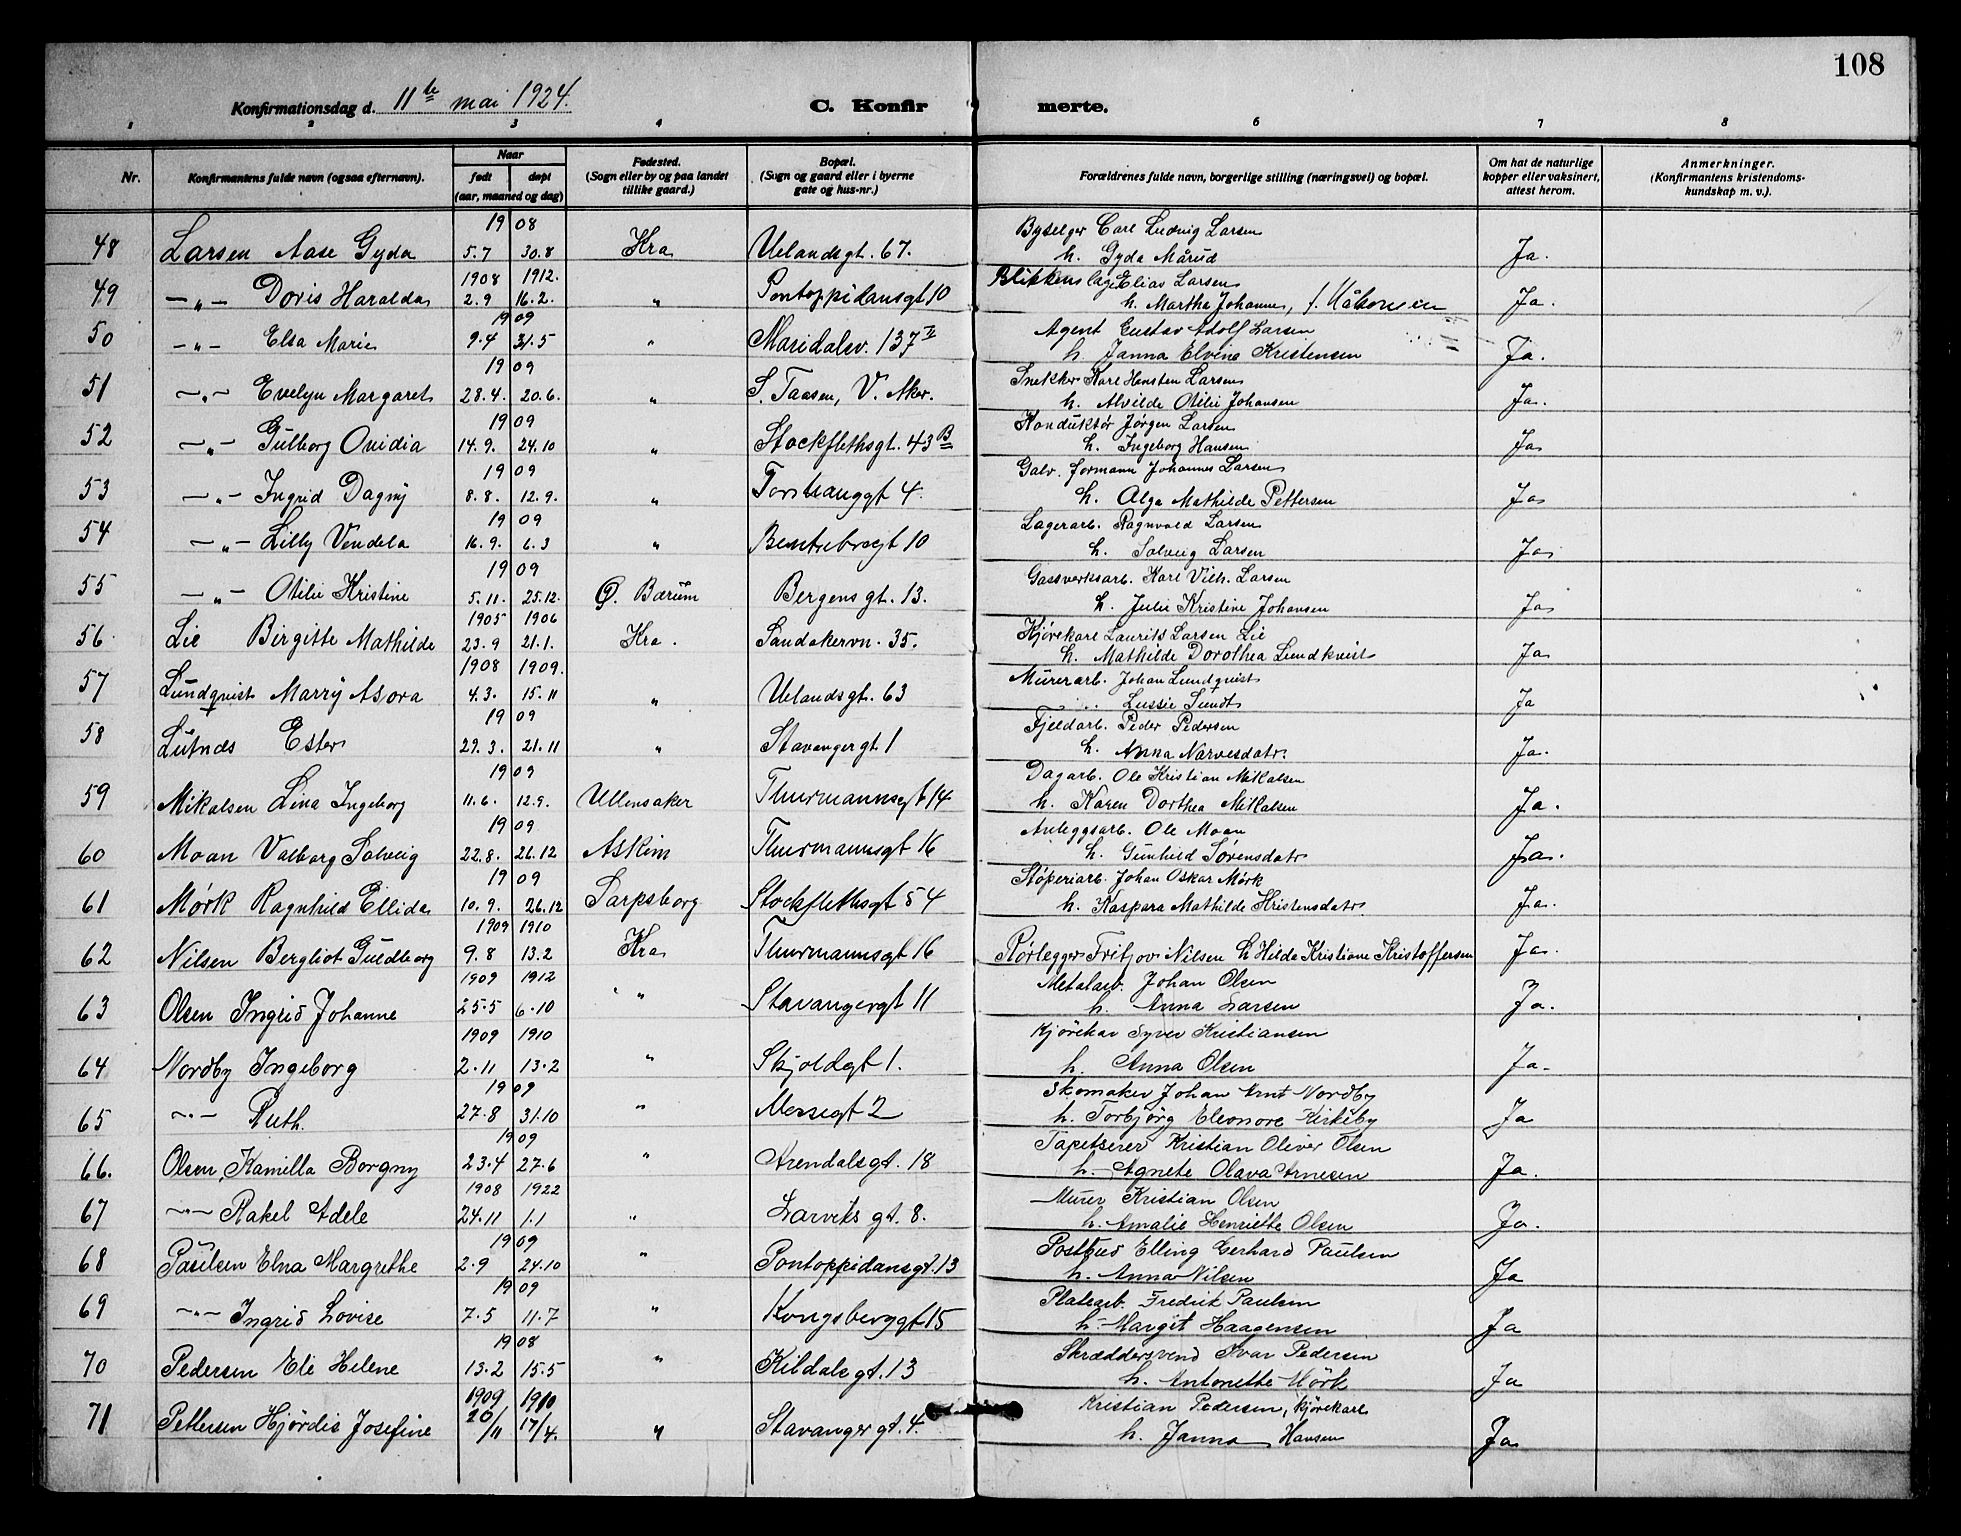 108
Konfirmationsdag d. 11te mai 1924.
C. Konfir merte.
1 2 3 4 6 7 8
Nr.
Konfirmantens fulde navn (ogsaa efternavn).
Naar
født døpt
(aar, maaned og dag)
Fødested.
(Sogn eller by og paa landet
tillike gaard.)
Bopæl.
(Sogn og gaard eller i byerne
gate og hus-nr.)
Forældrenes fulde navn, borgerlige stilling (næringsvei) og bopæl.
Om hat de naturlige
kopper eller vaksinert,
attest herom.
Anmerkninger.
(Konfirmantens kristendoms-
kundskap m. v.).
19 08 Byselger Carl Ludvig Larsen
48 Larsen Aase Gyda 5.7 30.8 Kra Uelandsgt. 67. h. Gyda Mårud Ja.
1908 1912. Blikkenslager Elias Larsen
49 —„— Doris Haralda 2.9 16.2. „ Pontoppidansgt 10 h. Martha Johanne, f. Ja.
19 09 Agent Gustav Adolf Larsen
50 —„— Elsa Marie 9.4 31.5 „ Maridalsv. 137 II h. Janna Elvine Kristensen Ja.
19 09 Snekker Karl Hensten Larsen
51 —„— Evelyn Margaret 28.4. 20.6. „ S. Taasen, V. Aker. h. Alvilde Otilie Johansen Ja.
19 09 Konduktør Jørgen Larsen
52 —„— Gulborg Ovidia 14.9. 24.10 „ Stockflethsgt. 43 B h. Ingeborg Hansen Ja
19 09 Galv. formann Johannes Larsen
53 —„— Ingrid Dagny 8.8. 12.9. „ Torshauggt 4. h. Alga Mathilde Pettersen Ja
19 09 Lagerarb. Ragnvald Larsen
54 —„— Lilly Vendela 16.9. 6.3 „ Bentsebrogt 10 h. Solveig Larsen Ja
19 09 Gassverksarb. Karl Vilh. Larsen
55 —„— Otilie Kristine 5.11. 25.12. Ø. Bærum Bergensgt. 13. h. Julie Kristine Johansen Ja
1905 1906 Kjørekarl Laurits Larsen Lie
56. Lie Birgitte Mathilde 23.9 21.1. Kra. Sandakervn. 35. h. Mathilde Dorothea Lundkvist Ja
1908 1909. Murerarb. Johan Lundqvist
57 Lundqvist Marry Asora 4.3. 15.11 „ Uelandsgt. 63 Lussie Sundt Ja
19 09 Fjeldarb. Peder Pedersen
58 Lutnæs Ester 29.3. 21.11 „ Stavangergt. 1 h. Anna Narvesdatr. Ja.
19 09 Dagarb. Ole Kristian Mikalsen
59 Mikalsen Lina Ingeborg 11.6. 12.9. Ullensaker Thurmannsgt 14 h. Karen Dorthea Mikalsen Ja.
19 09 Anleggsarb. Ole Moan
60 Moan Valborg Solveig 22.8. 26.12 Askim Thurmannsgt 16 h. Gunhild Sørensdatr Ja.
19 09 Støperiarb. Johan Oskar Mørk
61 Mørk Ragnhild Ellida 10.9. 26.12 Sarpsborg Stockflethsgt 54 h. Kaspara Mathilde Kristensdatr Ja.
1909 1910
62 Nilsen Bergliot Guldborg 9.8 13.2 Kra Thurmannsgt 16 Rørlegger Fritjov Nilsen h Hilda Kristiane Kristoffersen Ja.
1909 1912 Metalarb. Johan Olsen
63 Olsen Ingrid Johanne 25.5 6.10 „ Stavangergt 11 h. Anna Larsen Ja.
1909 1910 Kjørekar Syver Kristiansen
64 Nordby Ingeborg 2.11 13.2 „ Skjoldgt 1. h. Anna Olsen Ja.
19 09 Skomaker Johan Arnt Nordby
65 —"— Ruth. 27.8 31.10 „ Mossegt 2 h. Torbjørg Eleonore Kirkeby Ja
19 09 Tapetserer Kristian Oliver Olsen
66. Olsen, Kamilla Borgny 23.4 27.6 „ Arendalsgt. 18 h. Agnete Olava Arnesen Ja.
1908 1922 Murer Kristian Olsen
67 —"— Rakel Adele 24.11 1.1 „ Larviks gt. 8. h. Amalie Henriette Olsen Ja.
19 09 Postbud Elling Gerhard Paulsen
68 Paulsen Elna Margrethe 2.9 24.10 „ Pontoppidansgt. 13 h. Anna Nilsen Ja
19 09 Platearb. Fredrik Paulsen
69 —"— Ingrid Lovise 7.5 11.7 „ Kongsberggt 15 h. Margit Haagensen Ja
19 08 Skræddersvend Ivar Pedersen
70 Pedersen Eli Helene 13.2 15.5 „ Kildalsgt. 13 h. Antonette Mörk Ja
1909 1910 Kristian Pedersen, kjörekarl
71 Pettersen Hjördis Josefine 20/11 17/4. „ Stavanger gt. 4. h. Janna Hansen Ja